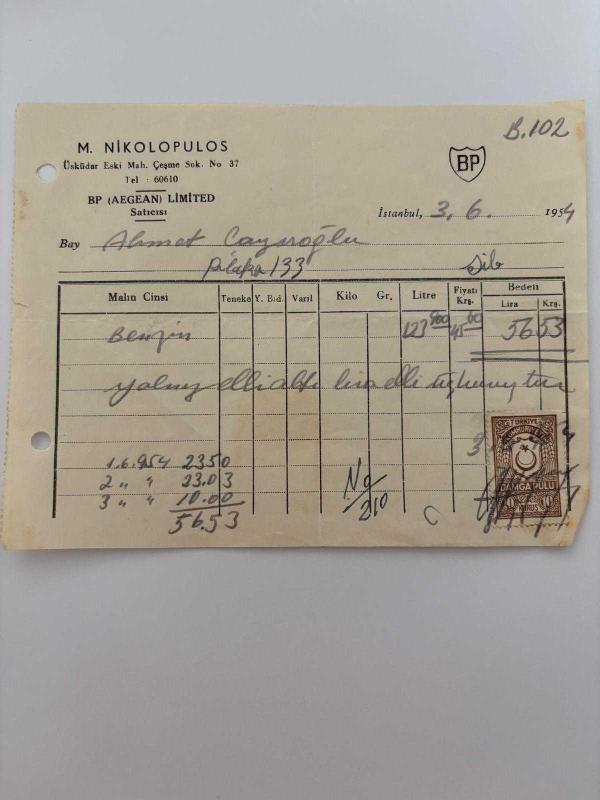 B.102
M. NİKOLOPULOS
Üsküdar Eski Mah. Çeşme Sok. No 37
Tel : 60610
BP (AEGEAN) LİMİTED
Satıcısı
BP
İstanbul, 3. 6. 1954
Bay Ahmet Cayıroğlu
Pilaka 133
Malın Cinsi Teneke Y. Bid. Varil Kilo Gr. Litre Fiyatı Krş. Bedeli Lira Krş.
Benzin 56 53
yalnız elli altı lira elli üç kuruştur
1.6.954 2350
2 " " 23.03
3 " " 10.00
56.53
No
210
TÜRKİYE
CUMHURİYETİ
DAMGA PULU
10 10
KURUŞ